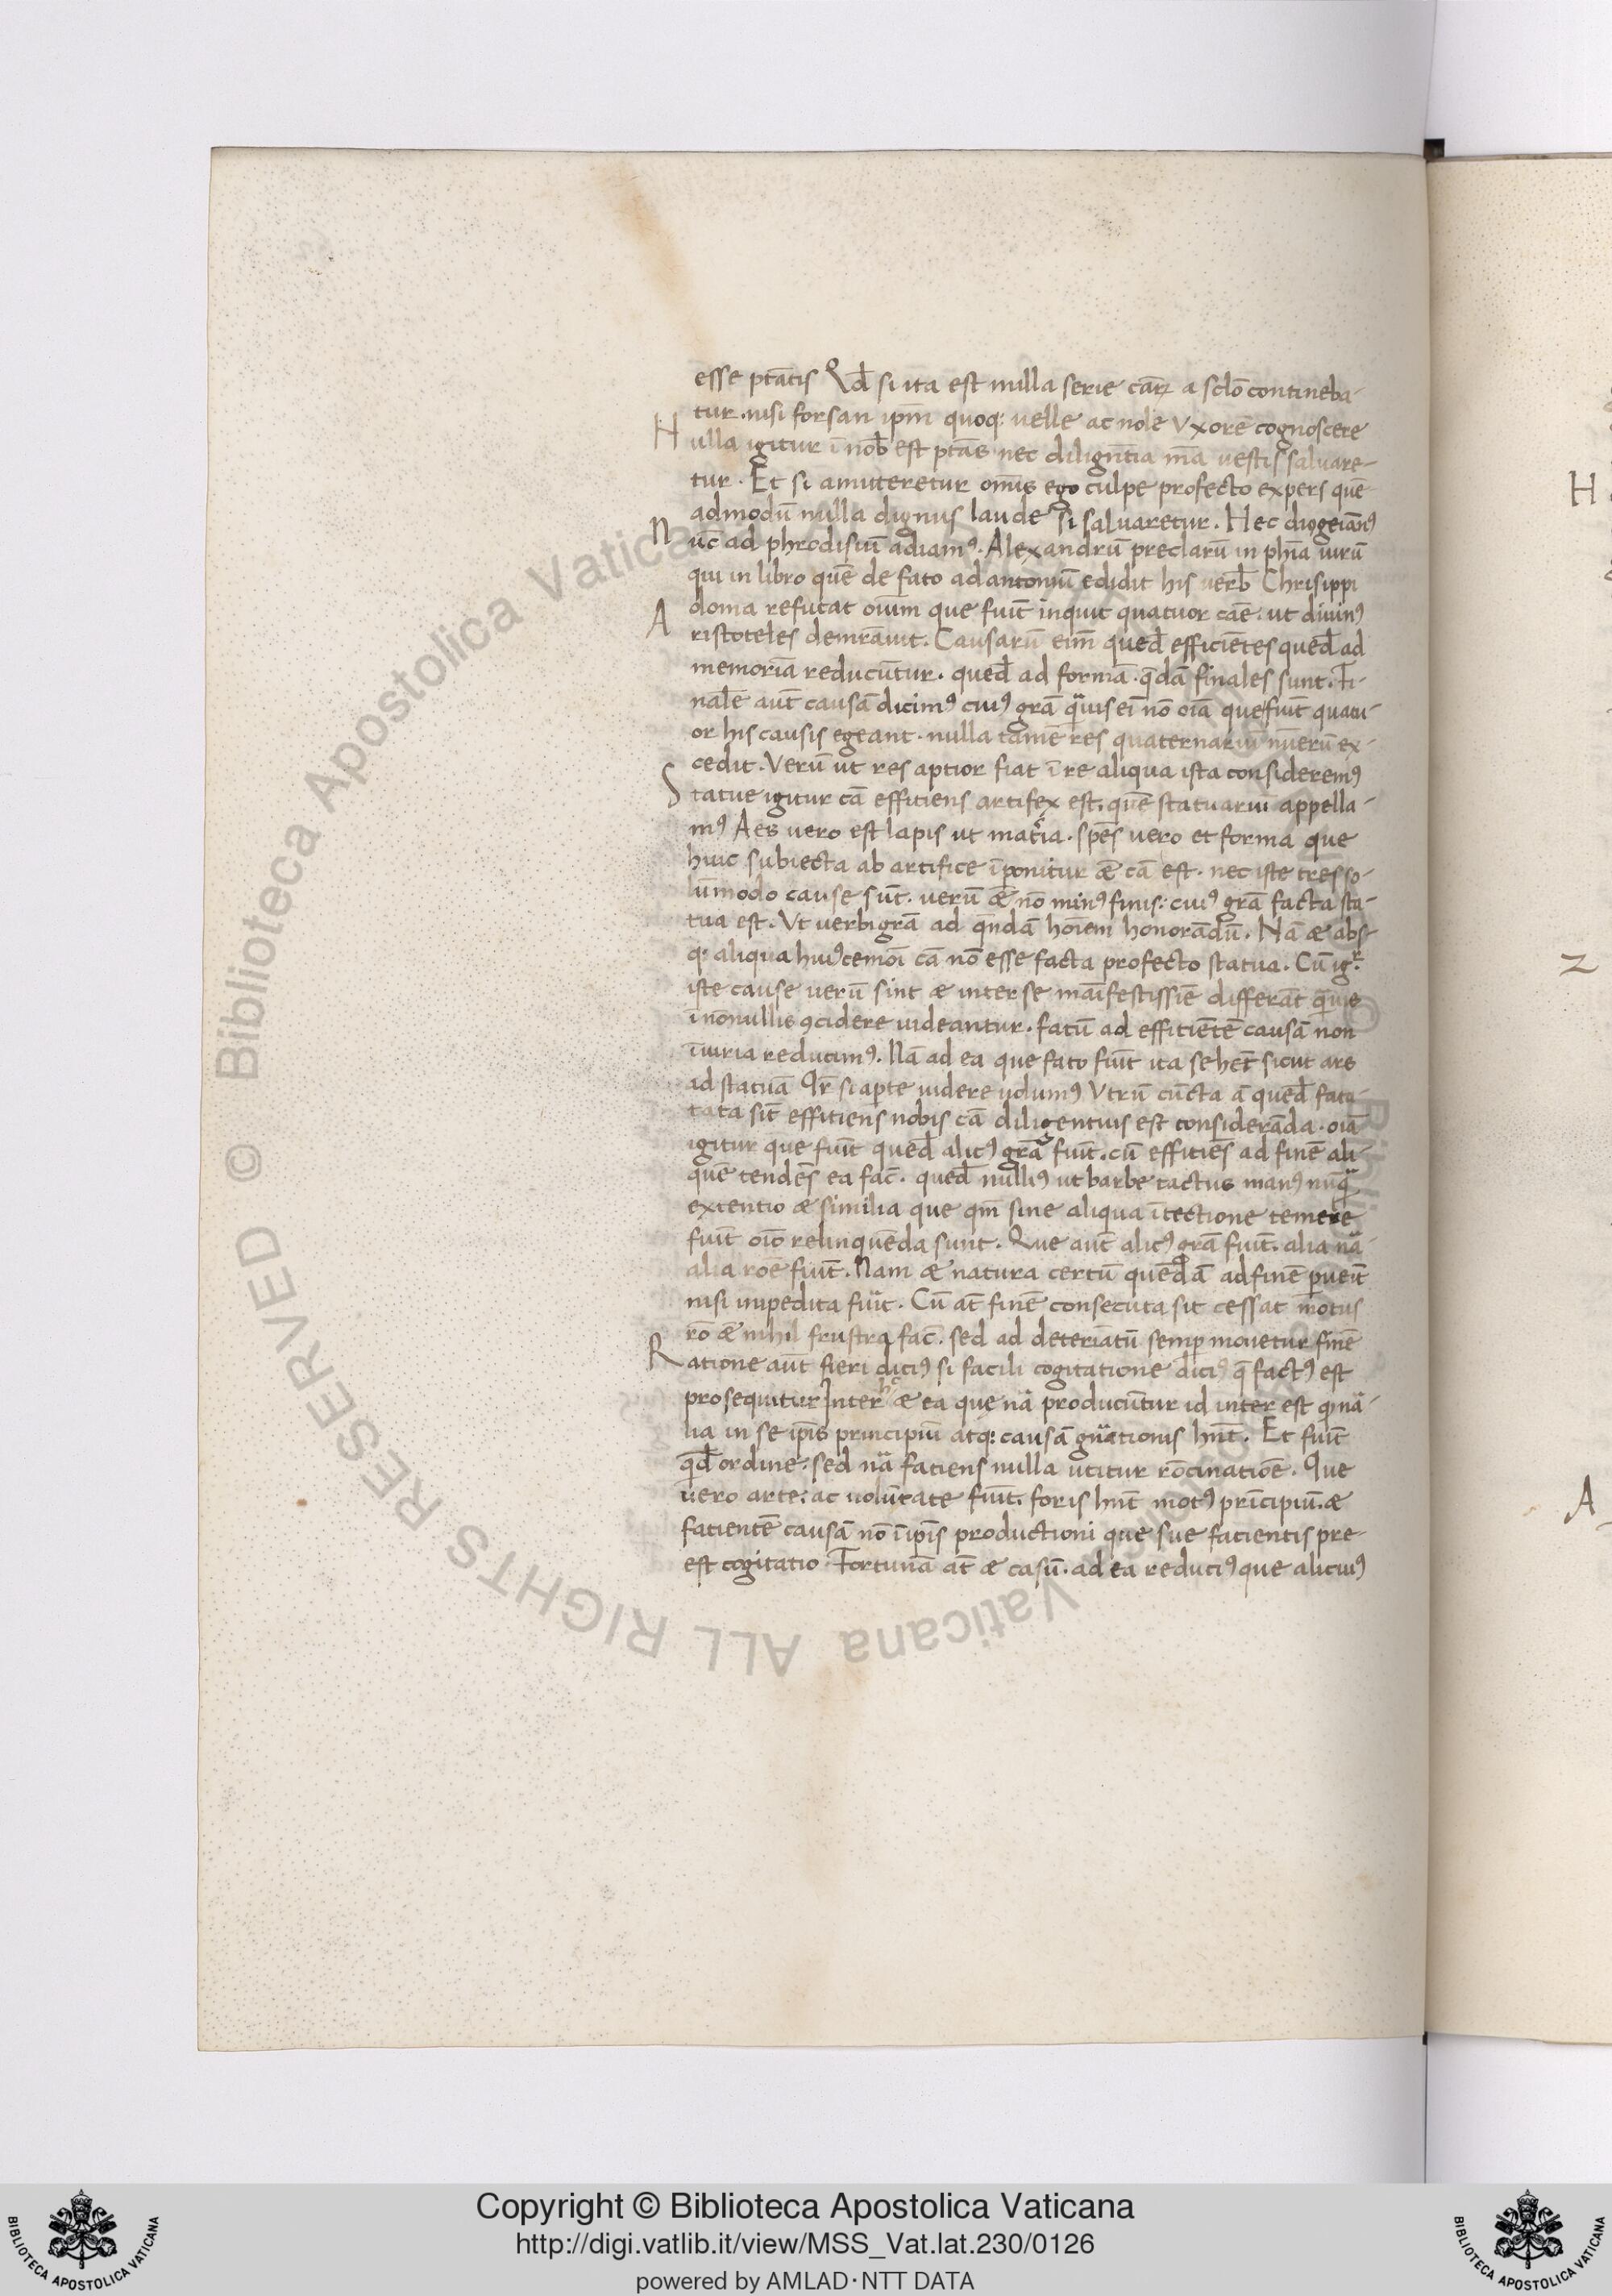 esse ptātis Qd̄ si ita est nulla serie cāꝝ a sclō contineba-
tur. nisi forsan ipm̄ quoq: uelle ac nolē Vxorē cognoscere
Nulla igitur ī nob̄ est ptās nec diligñtia mā vestis saluare-
tur. Et si amitteretur om̄is ego culpe profecto expers quē
admodū nulla dignus laude si saluaretur. Hec diogeiān9
Nūc ad phrodisiū adiam9. Alexandrū preclarū in phīa uirū
qui in libro quē de fato ad antoniū edidit his uerb̄ Chrisippi
doma refutat oium que fiūt inquit quatuor cāe: ut diuin9
Aristoteles demrāuit. Causarū eim̄ qued̄ efficiētes qued̄ ad
memoriā reducūtur. qued̄ ad formā. q̄dā finales sunt. Fi-
nalē aūt causā dicim9 cui9 grā q̄uis ei nō oīa que fiūt quatu-
or his causis egeant. nulla tamē res quaternariū nūerū ex-
cedit. Verū ut res aptior fiat ī re aliqua ista considerem9
Statue igitur cā effitiens artifex est. quē statuariū appella-
m9 Aes uero est lapis ut matīa. spēs uero et forma que
huic subiecta ab artifice īponitur ǣ cā est. nec iste tres so-
lūmodo cause sūt. uerū ǣ nō min9 finis: cui9 grā facta sta-
tua est. Vt uerbi grā ad q̄ndā hoīem honorādū. Nā æ abs-
q: aliqua hui9cemōi cā nō esse facta profecto statua. Cū igr
iste cause uerū sint æ inter se māifestissīe differāt q̄uis
ī nōnullis 9cidere uideantur. fatū ad effitiētē causā non
īiuria reducim9. Nā ad ea que fato fiūt ita se hēt sicut ars
ad statuā Qr̄ si apte uidere uolum9 Vtrū cūcta ā qued̄ fata-
tata sīt effitiens nobis cā diligentius est considerāda. oīa
igitur que fiūt qued̄ alic9 grā fiūt. cū effitiēs ad finē ali-
quē tendēs ea fac̄. qued̄ nulli9 ut barbe tactus man9 nūq̄
extentio æ similia que qm̄ sine aliqua ītectione temere
fiūt oīo relinquēda sunt. Que aūt alic9 grā fiūt. alia nā
alia roē fiūt. Nam æ natura certū quēdā ad finē pueīt
nisi impedita fūit. Cū at̄ finē consecuta sit cessat motus
rō ǣ nihil frustra fac̄. sed ad deteriatū semp mouetur finē
Ratione aūt fieri dici9 si facili cogitatione dici9 q̄ fact9 est
prosequitur Inter hc æ ea quę nā producūtur id inter est q nā-
lia in se ipīs principiū atq: causā gn̄ationis hn̄t. Et fiūt
qd̄ ordine. sed nā fatiens nulla utitur rōcinatiōe. Que
uero arte: ac uolūtate fiūt. foris hn̄t mot9 prīcipiū. æ
fatientē causā nō ī ipīs productioni que sue fatientis pre-
est cogitatio. Fortunā at̄ æ casū. ad ea reduci9 que alicui9
H
Z
A
Copyright © Biblioteca Apostolica Vaticana
http://digi.vatlib.it/view/MSS_Vat.lat.230/0126
powered by AMLAD·NTT DATA
BIBLIOTECA APOSTOLICA VATICANA
BIBLIOTECA APOSTOLICA VATICANA
© Biblioteca Apostolica Vaticana ALL RIGHTS RESERVED